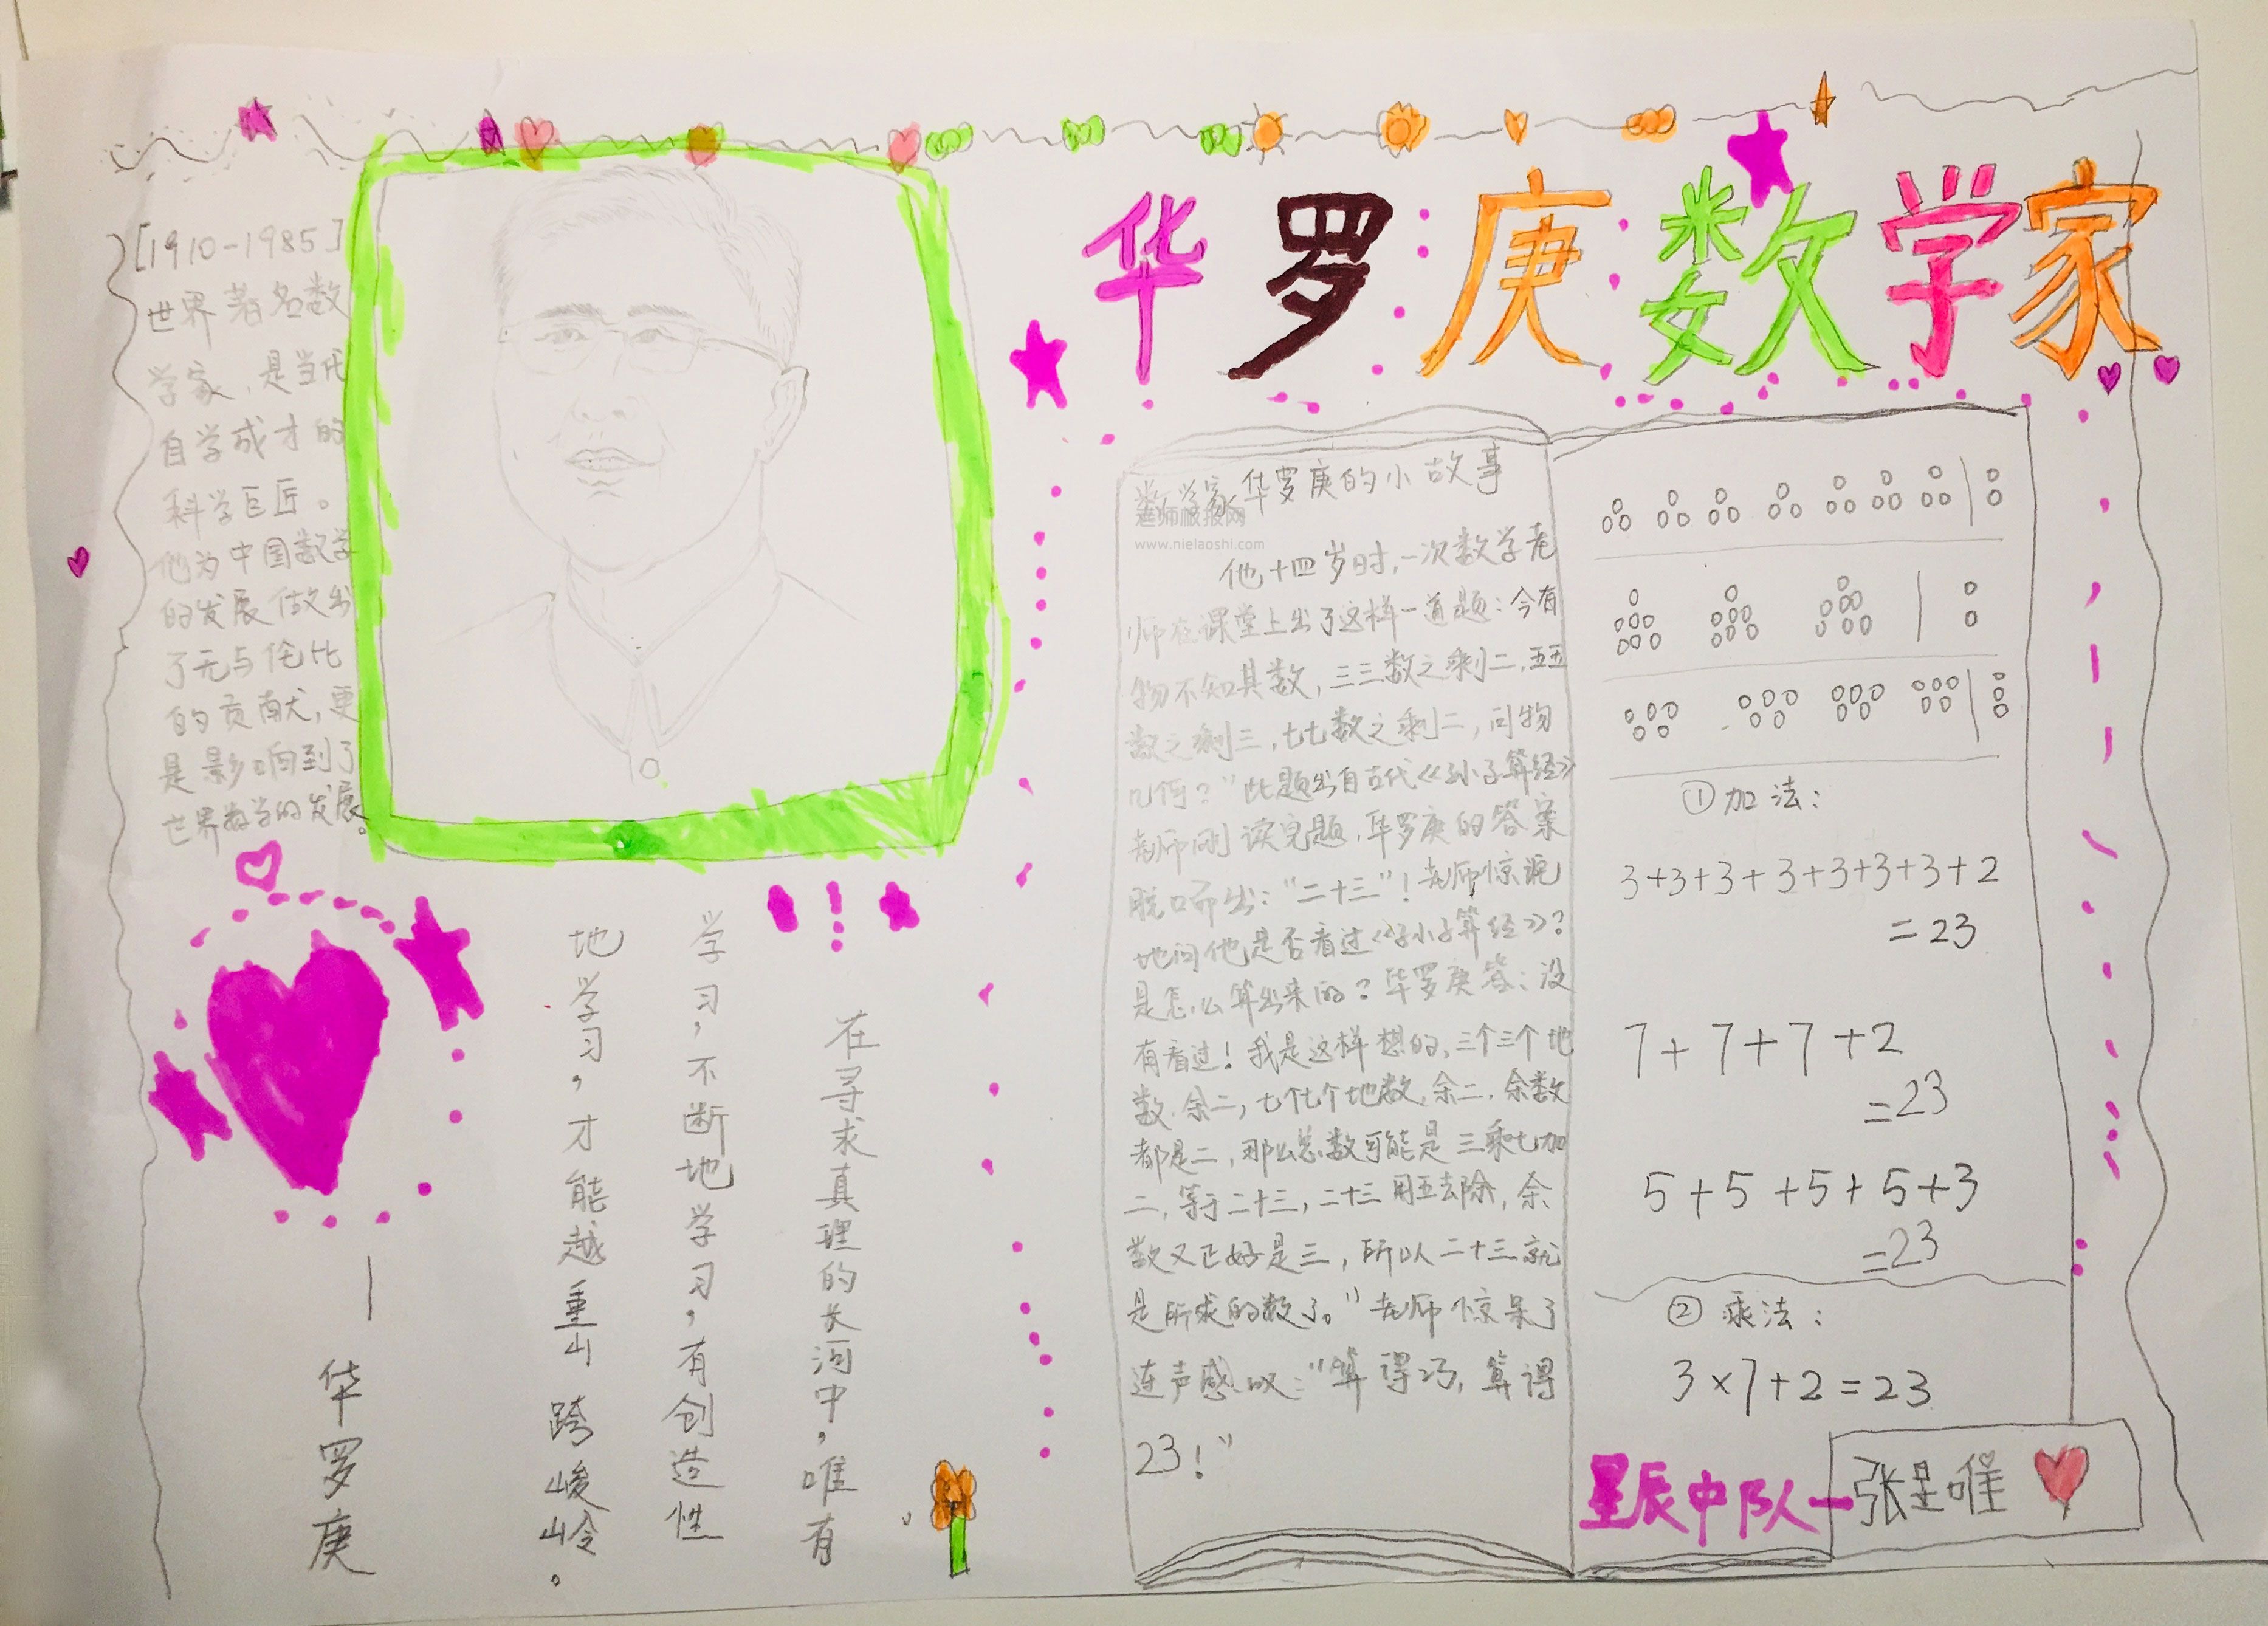 华罗庚数学家
[1910-1985]
世界著名数
学家,是当代
自学成才的
科学巨匠。
他为中国数学
的发展做出
了无与伦比
的贡献,更
是影响到了
世界数学的发展。
在寻求真理的长河中,唯有
学习,不断地学习,有创造性
地学习,才能越重山跨峻岭。
—华罗庚
数学家华罗庚的小故事
老师板报网
www.nielaoshi.com
他十四岁时,一次数学老
师在课堂上出了这样一道题:今有
物不知其数,三三数之剩二,五五
数之剩三,七七数之剩二,问物
几何?"此题出自古代《孙子算经》
老师刚读完题,华罗庚的答案
脱口而出:"二十三"!老师惊讶
地问他是否看过《孙子算经》?
是怎么算出来的?华罗庚答:没
有看过!我是这样想的,三个三个地
数,余二,七个七个地数,余二,余数
都是二,那么总数可能是三乘七加
二,等于二十三,二十三用五去除,余
数又正好是三,所以二十三就
是所求的数了。"老师惊呆了
连声感叹:"算得巧,算得
23!"
①加法:
3+3+3+3+3+3+3+2
=23
7+7+7+2
=23
5+5+5+5+3
=23
②乘法:
3×7+2=23
星辰中队—张星唯